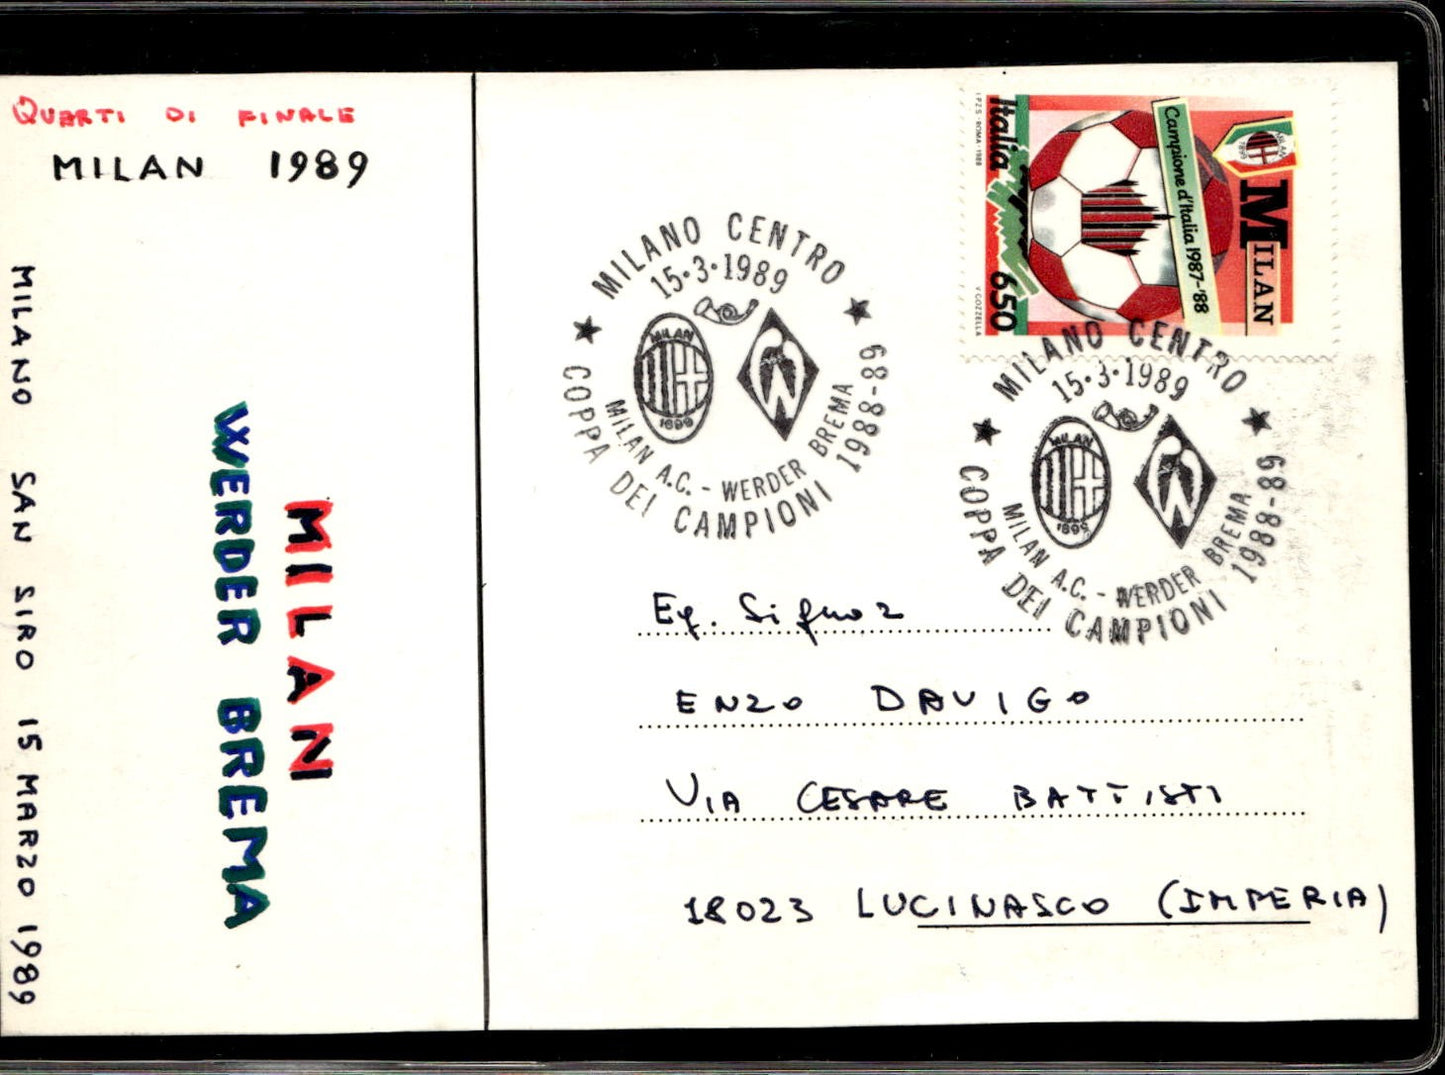 QUARTI DI FINALE
MILAN 1989
MILANO SAN SIRO 15 MARZO 1989
MILAN
WERDER BREMA
MILANO CENTRO
15·3·1989
MILAN
1899
MILAN A.C. - WERDER BREMA
COPPA DEI CAMPIONI 1988-89
MILAN
MILAN
1899
Campione d'Italia 1987-'88
Italia 650
I.P.Z.S. - ROMA 1988
V COZZELLA
MILANO CENTRO
15·3·1989
MILAN
1899
MILAN A.C. - WERDER BREMA
COPPA DEI CAMPIONI 1988-89
Eg. Signor
ENZO DAVIGO
VIA CESARE BATTISTI
18023 LUCINASCO (IMPERIA)